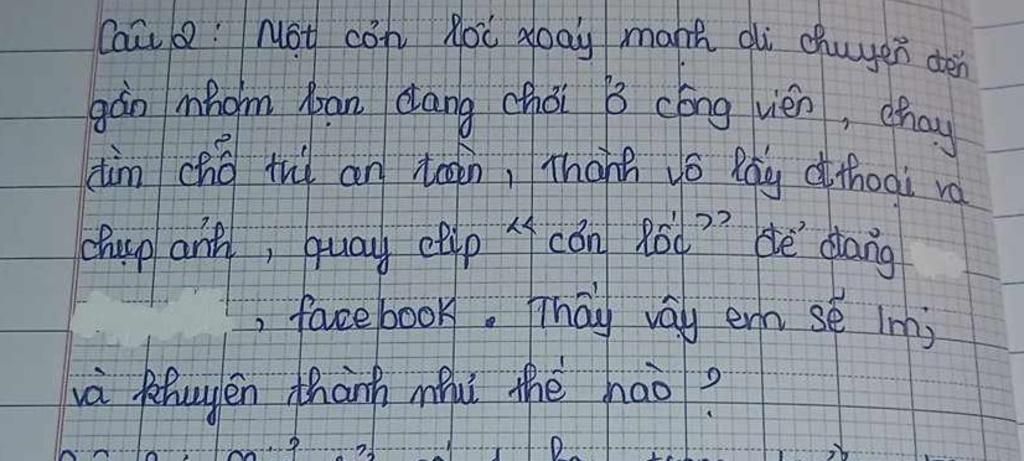 Câu 2: Một cơn lốc xoáy mạnh di chuyển đến
gần nhóm bạn đang chơi ở công viên, chạy
tìm chỗ thì an toàn, Thành vô lấy đthoại ra
chụp ảnh, quay clip "cơn lốc" để đăng
, facebook. Thấy vậy em sẽ lm;
và khuyên thành như thế nào?